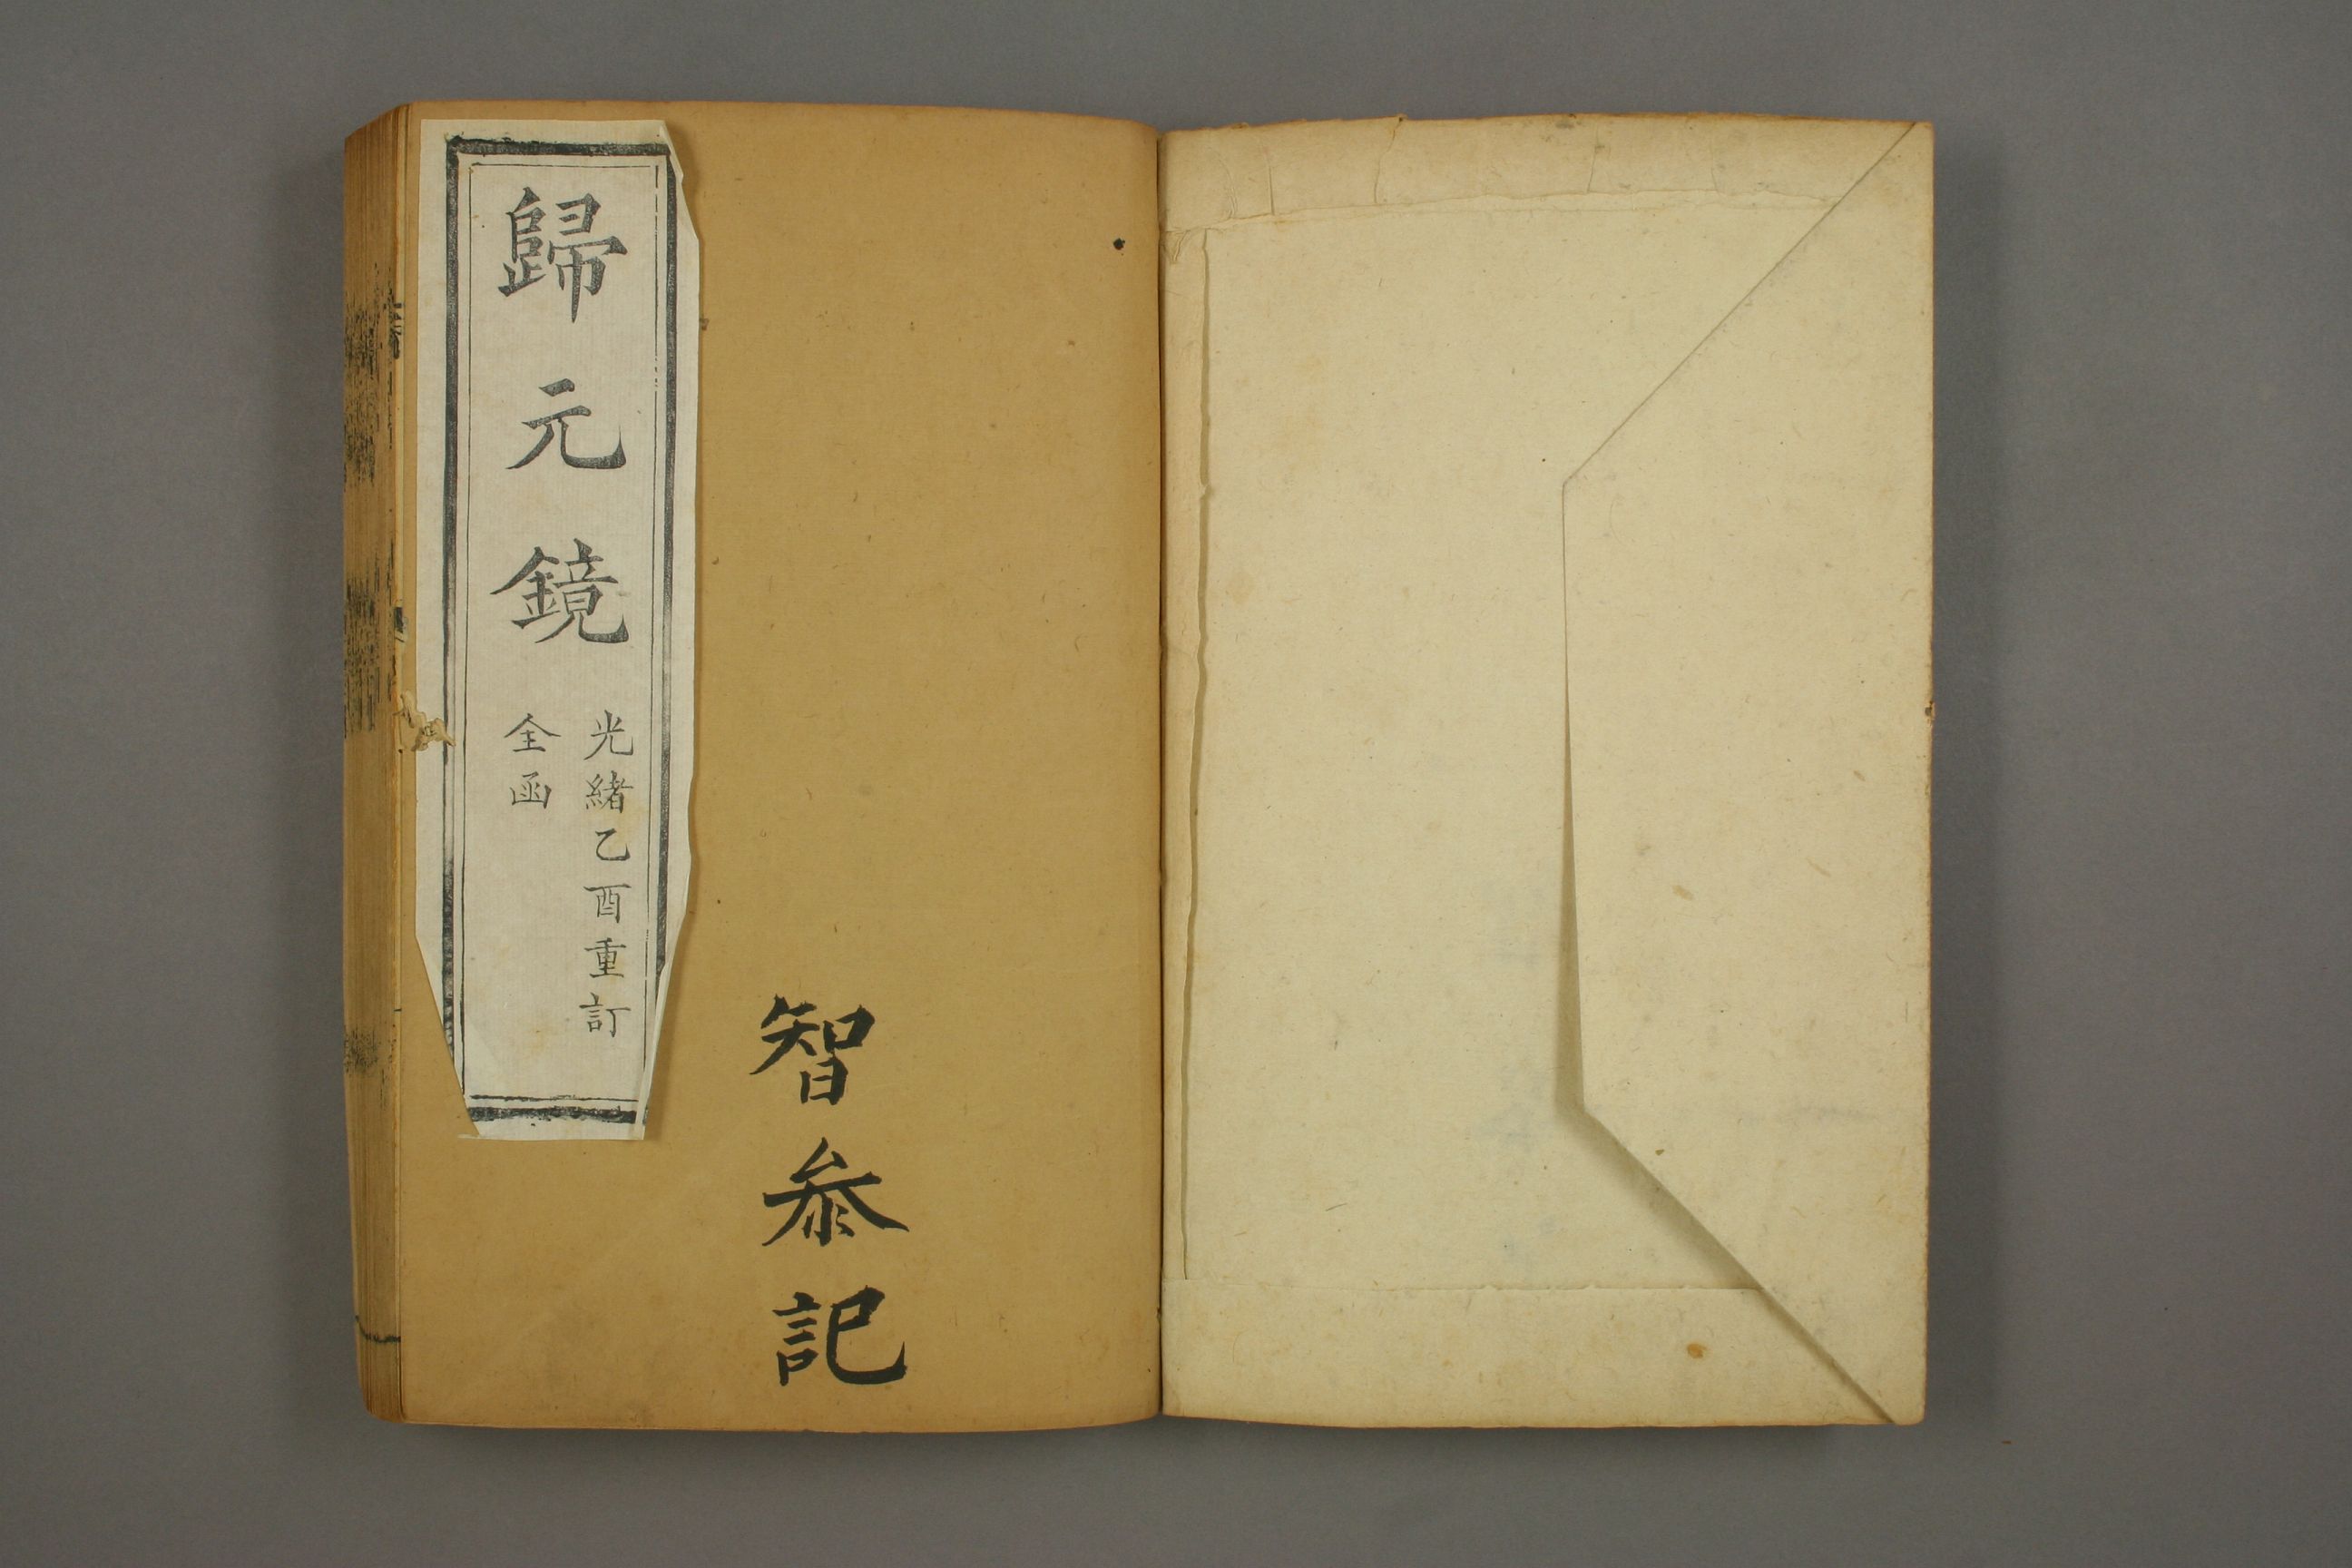 歸元鏡
光緒乙酉重訂
全函
智叅記